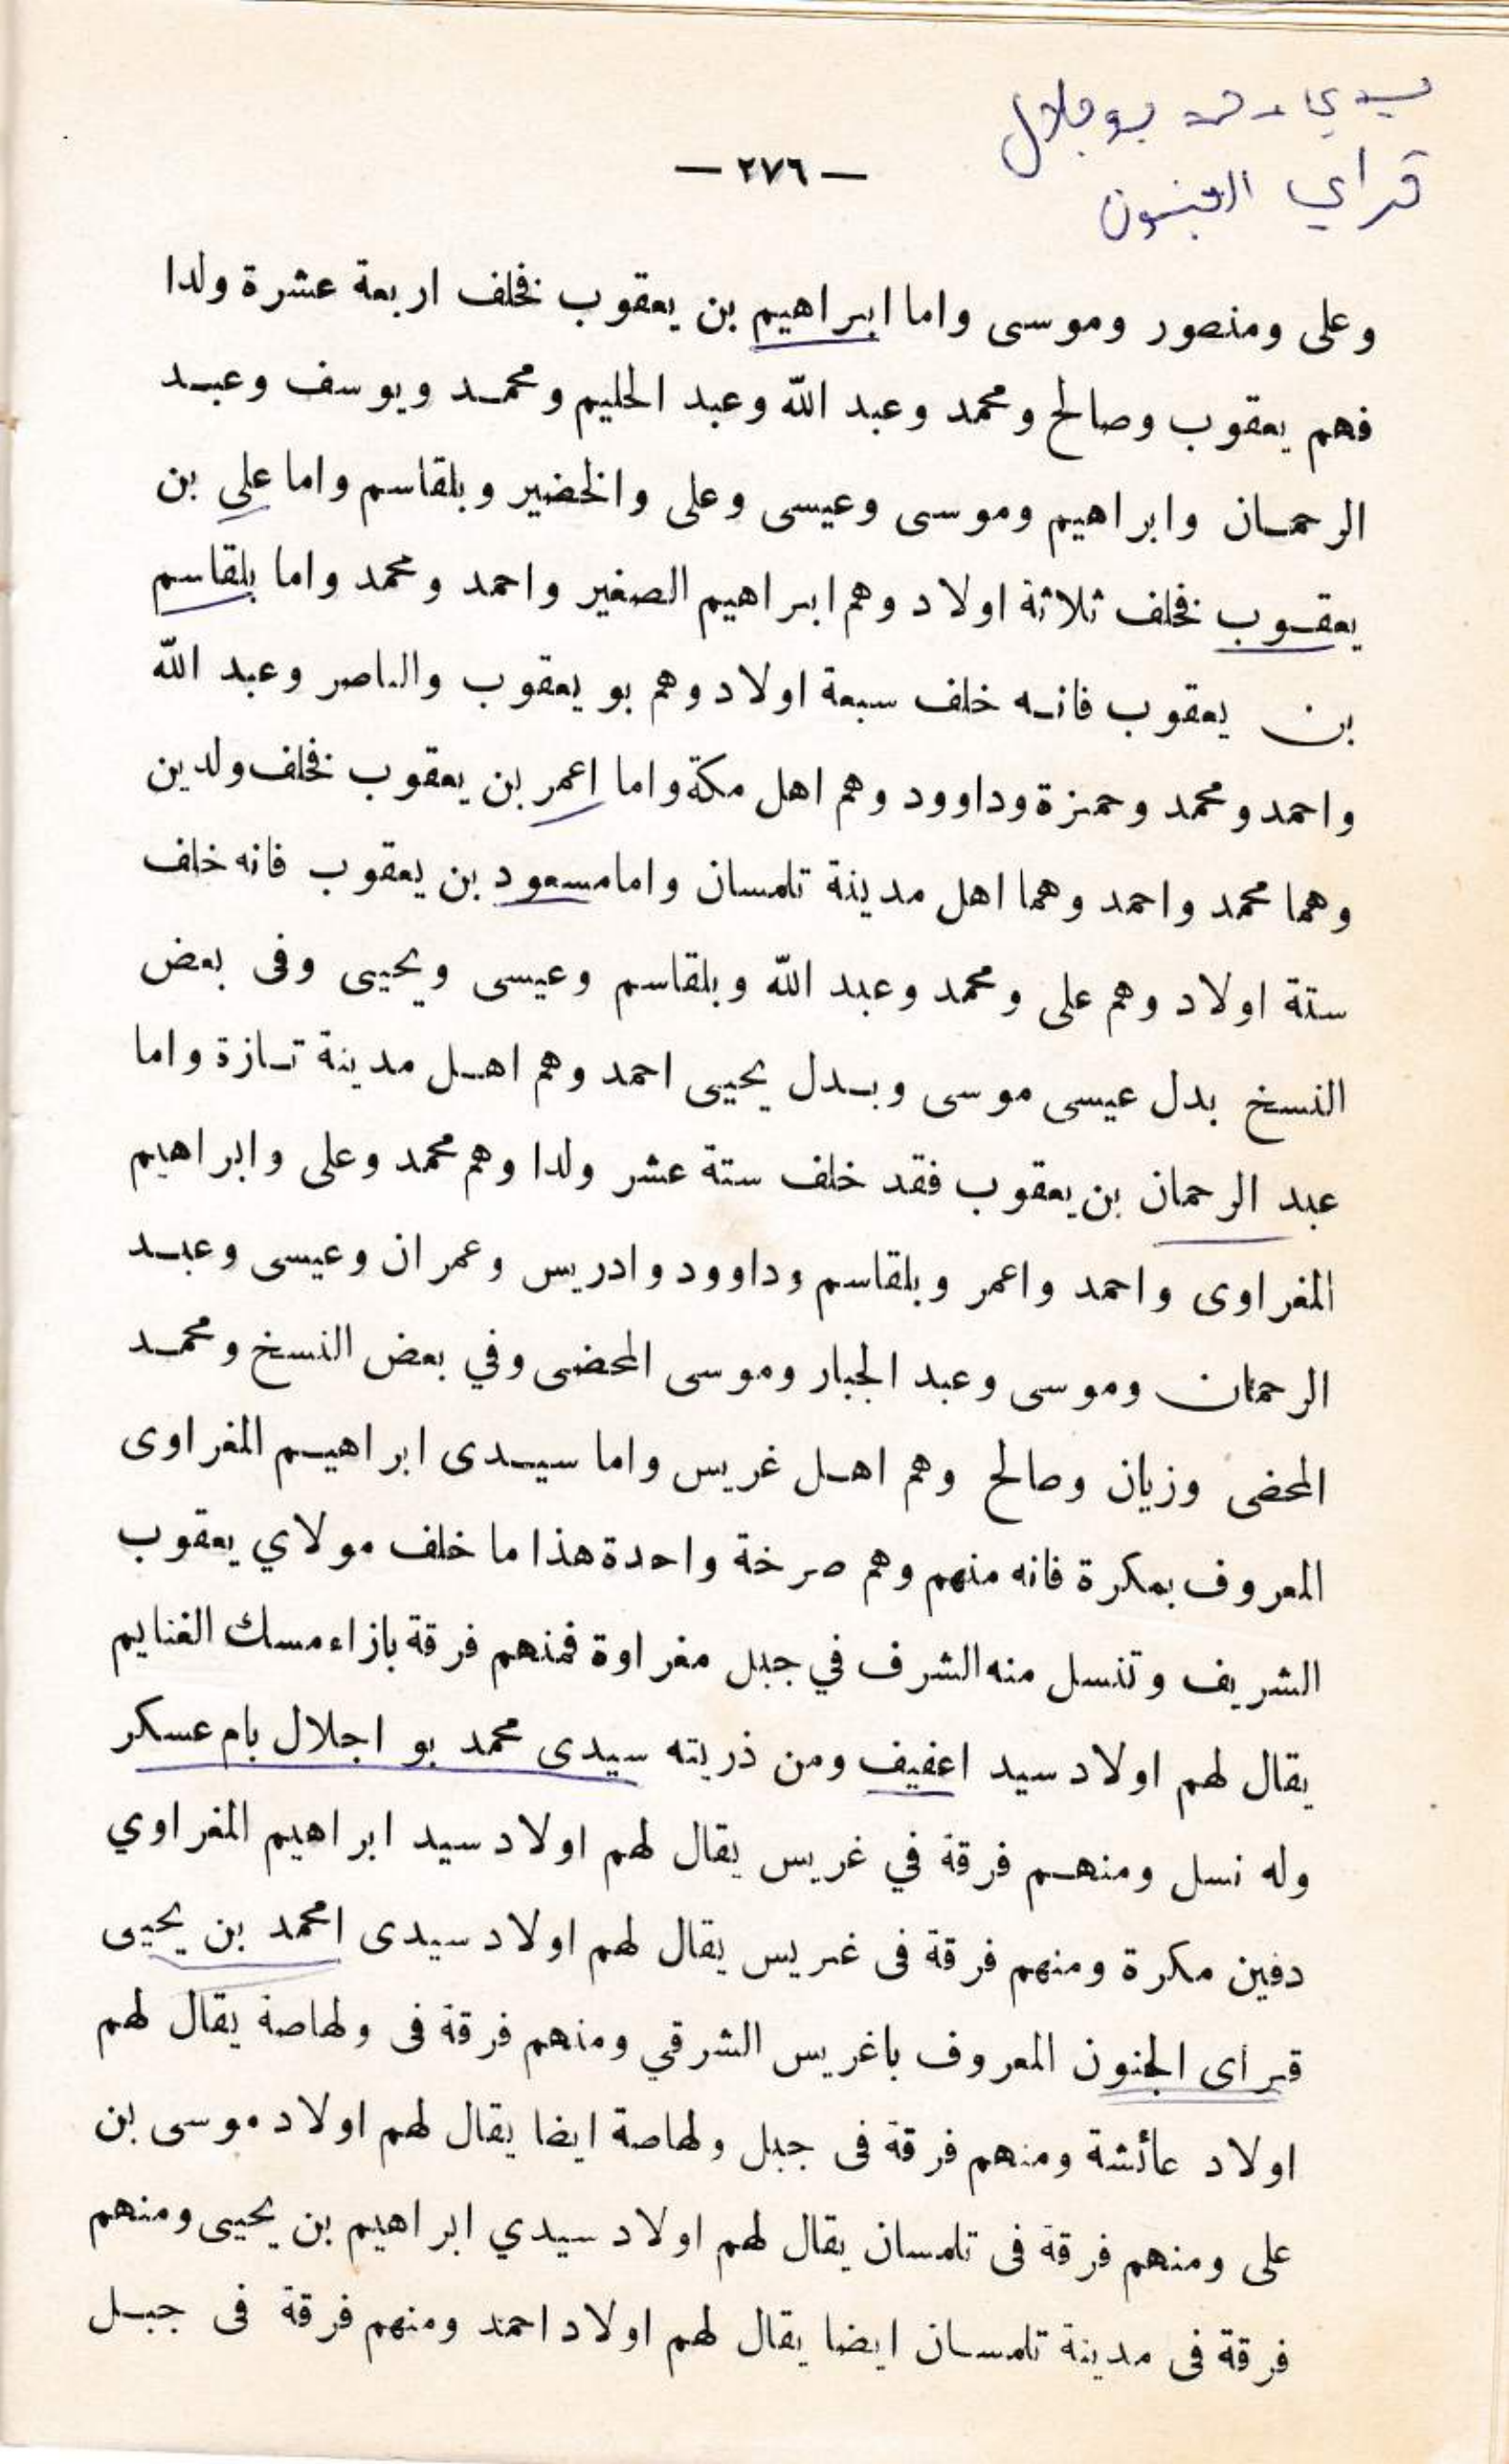 سيدي محمد بوجلال
— ٢٧٦ —
قراي الجنون
وعلى ومنصور وموسى واما ابراهيم بن يعقوب فخلف اربعة عشرة ولدا
فهم يعقوب وصالح ومحمد وعبد الله وعبد الحليم ومحمد ويوسف وعبد
الرحمان وابراهيم وموسى وعيسى وعلى والخضير وبلقاسم واما على بن
يعقوب فخلف ثلاثة اولاد وهم ابراهيم الصغير واحمد ومحمد واما بلقاسم
بن يعقوب فانه خلف سبعة اولاد وهم بو يعقوب والناصر وعبد الله
واحمد ومحمد وحمزة وداوود وهم اهل مكة واما اعمر بن يعقوب فخلف ولدين
وهما محمد واحمد وهما اهل مدينة تلمسان واما مسعود بن يعقوب فانه خلف
ستة اولاد وهم على ومحمد وعبد الله وبلقاسم وعيسى ويحيى وفى بعض
النسخ بدل عيسى موسى وبدل يحيى احمد وهم اهل مدينة تازة واما
عبد الرحمان بن يعقوب فقد خلف ستة عشر ولدا وهم محمد وعلى وابراهيم
المغراوى واحمد واعمر وبلقاسم وداوود وادريس وعمران وعيسى وعبد
الرحمان وموسى وعبد الجبار وموسى المحضى وفي بعض النسخ ومحمد
المحضى وزيان وصالح وهم اهل غريس واما سيدى ابراهيم المغراوى
المعروف بمكرة فانه منهم وهم صرخة واحدة هذا ما خلف مولاي يعقوب
الشريف وتنسل منه الشرف في جبل مغراوة فمنهم فرقة بازاء مسك الغنايم
يقال لهم اولاد سيد اعفيف ومن ذريته سيدى محمد بو اجلال بام عسكر
وله نسل ومنهم فرقة في غريس يقال لهم اولاد سيد ابراهيم المغراوي
دفين مكرة ومنهم فرقة فى غريس يقال لهم اولاد سيدى امحمد بن يحيى
قراى الجنون المعروف باغريس الشرقي ومنهم فرقة فى ولهاصة يقال لهم
اولاد عائشة ومنهم فرقة فى جبل ولهاصة ايضا يقال لهم اولاد موسى بن
على ومنهم فرقة فى تلمسان يقال لهم اولاد سيدي ابراهيم بن يحيى ومنهم
فرقة فى مدينة تلمسان ايضا يقال لهم اولاد احمد ومنهم فرقة فى جبل